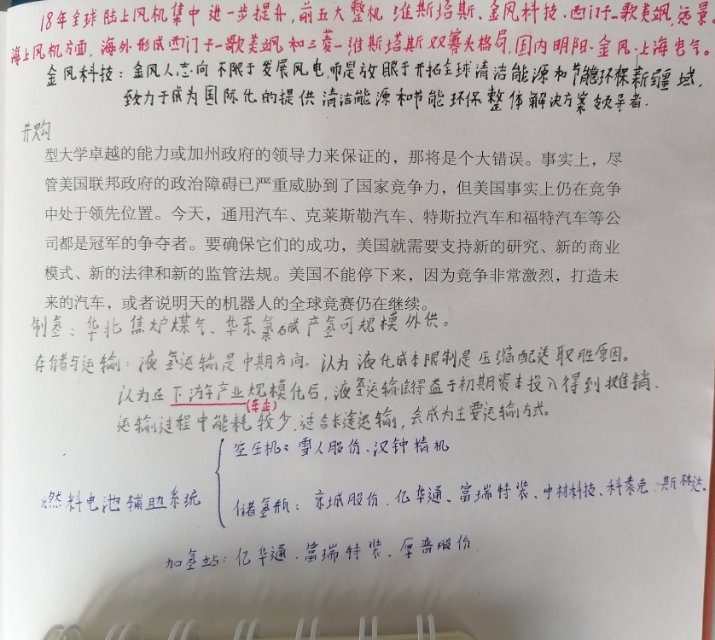 18年全球陆上风机集中进一步提升,前五大整机:维斯塔斯.金风科技.西门子-歌美飒,远景
海上风机方面,海外形成西门子-歌美飒和三菱-维斯塔斯双寡头格局.国内明阳.金风.上海电气。
金风科技:金风人志向不限于发展风电,而是放眼于开拓全球清洁能源和节能环保新疆域,
致力于成为国际化的提供清洁能源和节能环保整体解决方案领导者.
并购
型大学卓越的能力或加州政府的领导力来保证的,那将是个大错误。事实上,尽
管美国联邦政府的政治障碍已严重威胁到了国家竞争力,但美国事实上仍在竞争
中处于领先位置。今天,通用汽车、克莱斯勒汽车、特斯拉汽车和福特汽车等公
司都是冠军的争夺者。要确保它们的成功,美国就需要支持新的研究、新的商业
模式、新的法律和新的监管法规。美国不能停下来,因为竞争非常激烈,打造未
来的汽车,或者说明天的机器人的全球竞赛仍在继续。
制氢:华北焦炉煤气、华东氯碱产氢可规模外供。
存储与运输:液氢运输是中期方向。认为液化成本限制是压缩配送取胜原因。
认为在下游产业规模化后,液氢运输能得益于初期资本投入得到摊销.
(车企)
运输过程中能耗较少,适合长途运输,会成为主要运输方式。
空压机:雪人股份.汉钟精机
燃料电池辅助系统
储氢瓶:京城股份.亿华通、富瑞特装、中材科技、科泰克.斯林达。
加氢站:亿华通.富瑞特装、厚普股份